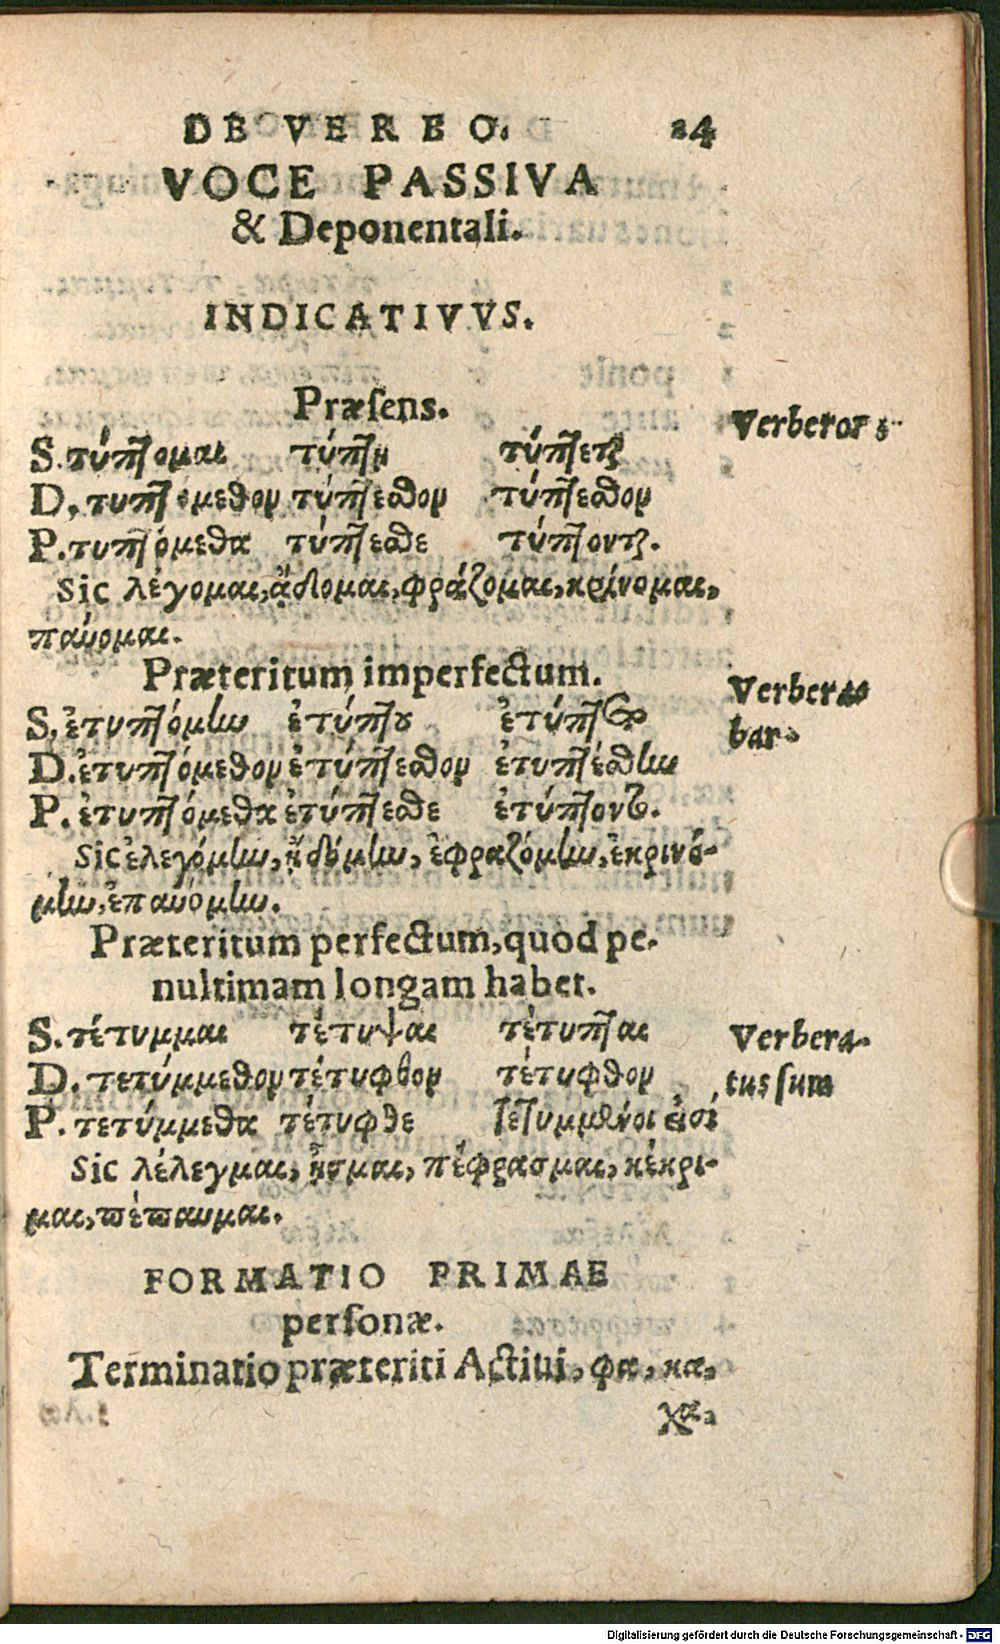 DE VERBO. 24
VOCE PASSIVA
& Deponentali.
INDICATIVVS.
Præſens.
Verberor
S. τύπτομαι τύπτῃ τύπτεται
D. τυπτόμεθον τύπτεσθον τύπτεσθον
P. τυπτόμεθα τύπτεσθε τύπτονται.
Sic λέγομαι, ᾄδομαι, φράζομαι, κρίνομαι,
παύομαι.
Præteritum imperfectum.
Verbera
bar.
S. ἐτυπτόμην ἐτύπτου ἐτύπτετο
D. ἐτυπτόμεθον ἐτύπτεσθον ἐτυπτέσθην
P. ἐτυπτόμεθα ἐτύπτεσθε ἐτύπτοντο.
Sic ἐλεγόμην, ᾐδόμην, ἐφραζόμην, ἐκρινό-
μην, ἐπαυόμην.
Præteritum perfectum, quod pe-
nultimam longam habet.
S. τέτυμμαι τέτυψαι τέτυπται
Verbera-
tus ſum
D. τετύμμεθον τέτυφθον τέτυφθον
P. τετύμμεθα τέτυφθε τετυμμένοι εἰσί
Sic λέλεγμαι, ᾖσμαι, πέφρασμαι, κέκρι-
μαι, πέπαυμαι.
FORMATIO PRIMAE
perſonæ.
Terminatio præteriti Actiui, φα, κα,
χα,
Digitalisierung gefördert durch die Deutsche Forschungsgemeinschaft - DFG